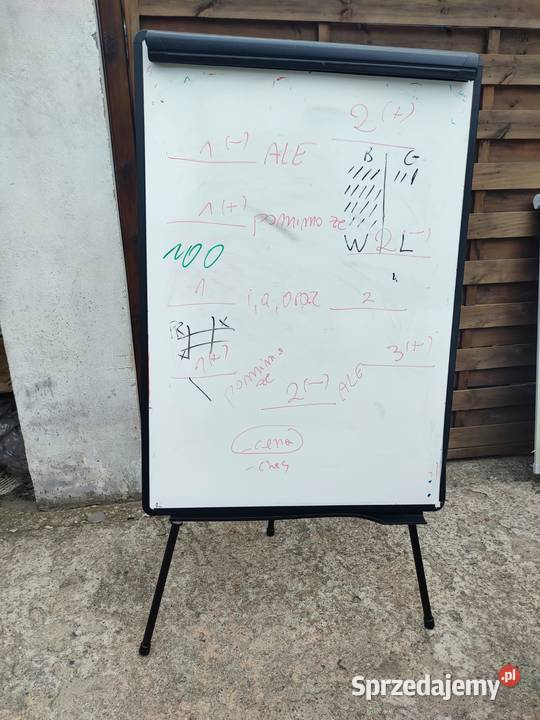 1 (-) ALE 2 (+)
B G
1 (+) pomimo że 2 (-)
W L
100
1 i, a, oraz 2
1 (+) pomimo że 2 (-) ALE 3 (+)
- cena
Sprzedajemy.pl